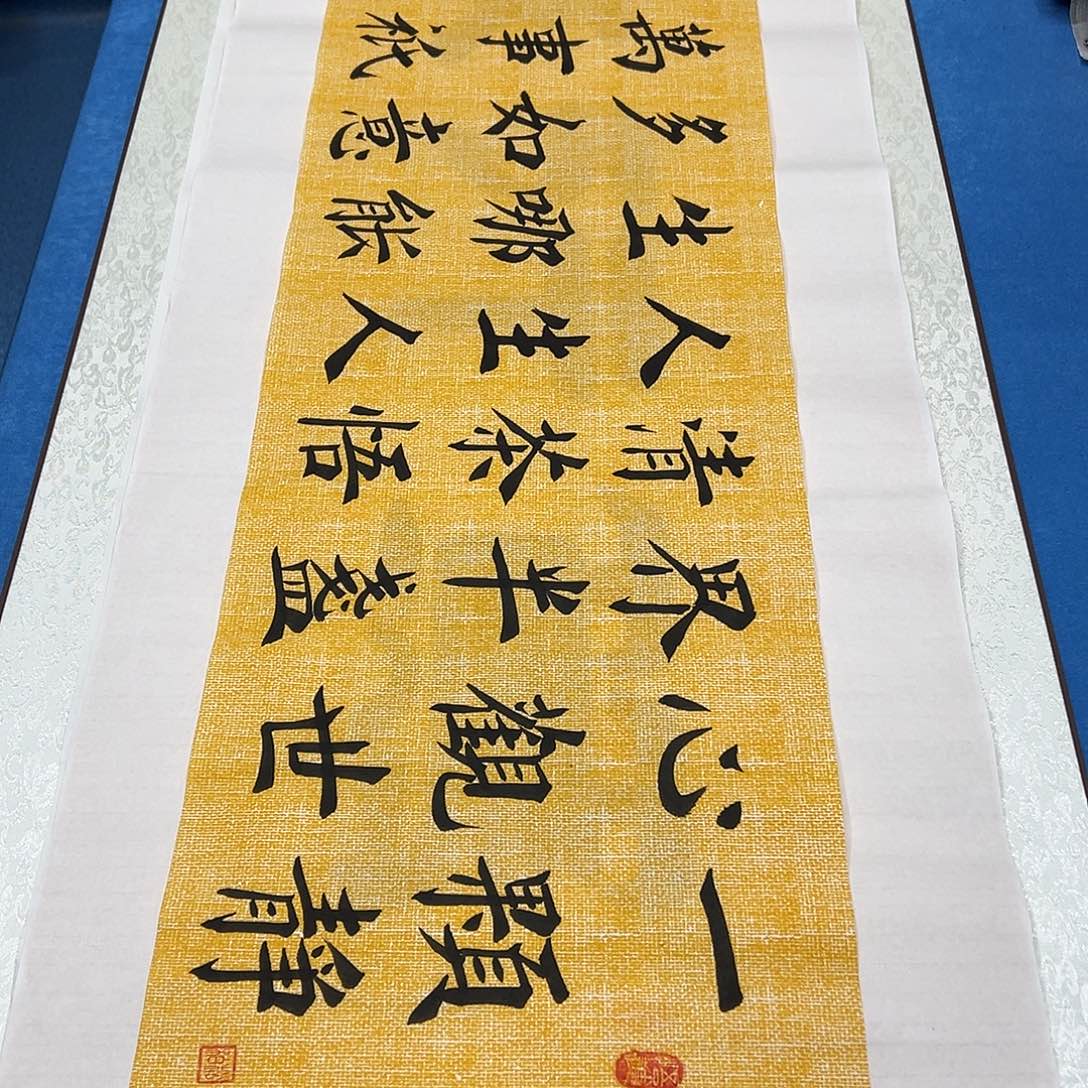 一顆靜
心觀世
界半盞
清茶悟
人生人
生哪能
多如意
萬事祇